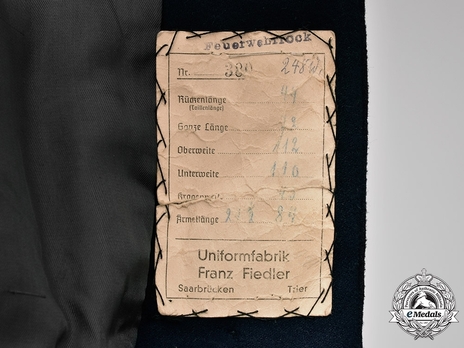 Feuerwehrrock
Nr. 320
Rückenlänge 41
(Taillenlänge)
Ganze Länge 73
Oberweite 112
Unterweite 110
Kragenweite
Ärmellänge 84
Uniformfabrik
Franz Fiedler
Saarbrücken Trier
eMedals